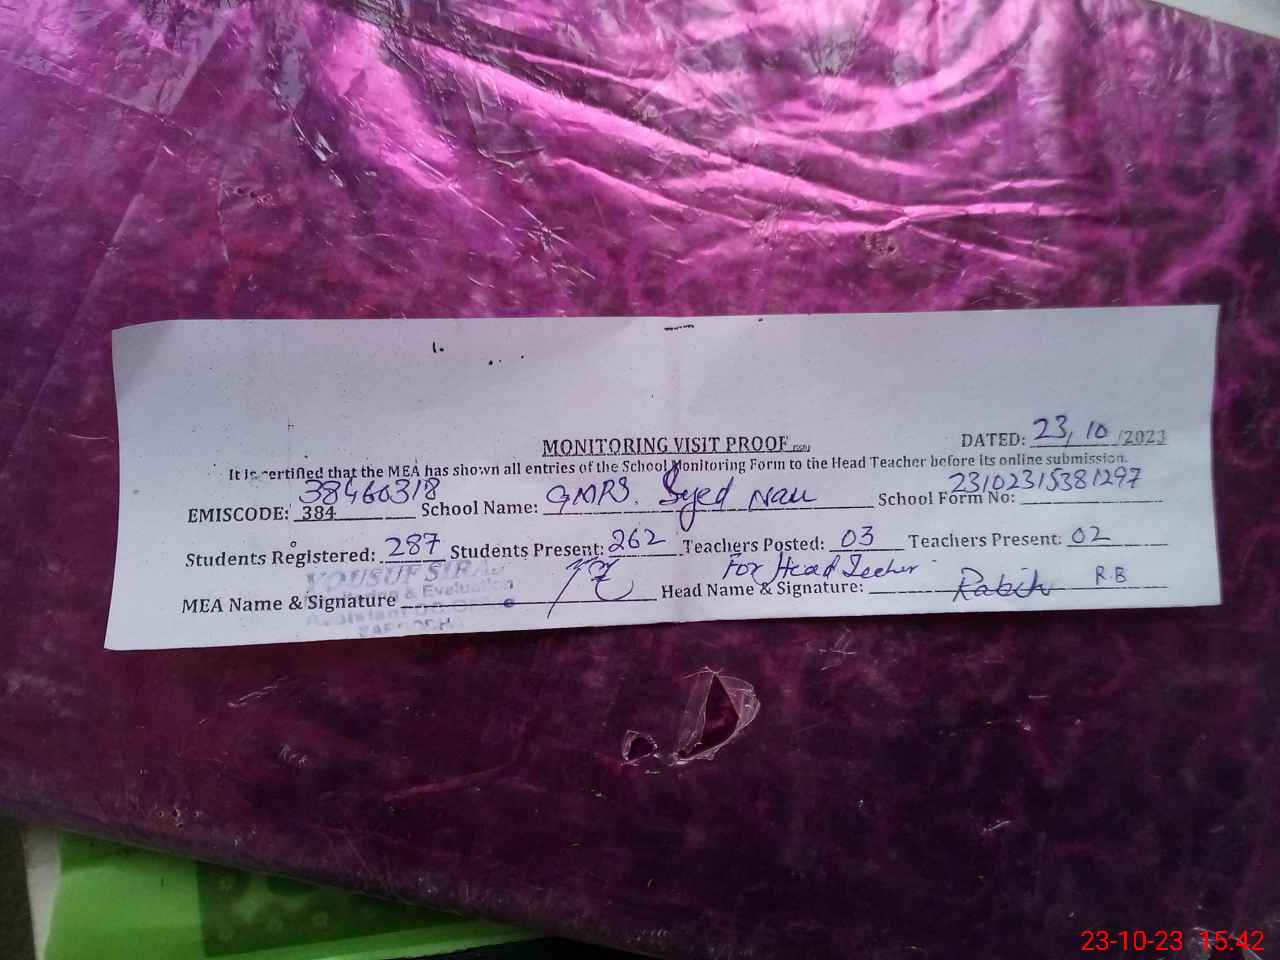 MONITORING VISIT PROOF
DATED: 23, 10 /2023
It is certified that the MEA has shown all entries of the School Monitoring Form to the Head Teacher before its online submission.
EMISCODE: 384 38460318 School Name: GMPS. Syed Nau School Form No: 23102315381297
Students Registered: 287 Students Present: 262 Teachers Posted: 03 Teachers Present: 02
For Head Teacher
MEA Name & Signature Head Name & Signature: R.B
YOUSUF SIRAJ
& Evaluation
Assistant
23-10-23 15:42